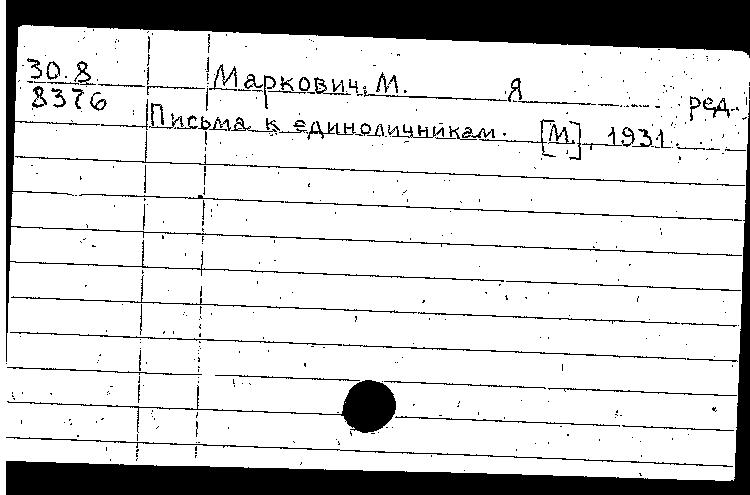 30.8 Маркович, М. Я ред.
8376
Письма к единоличникам. [М.], 1931.